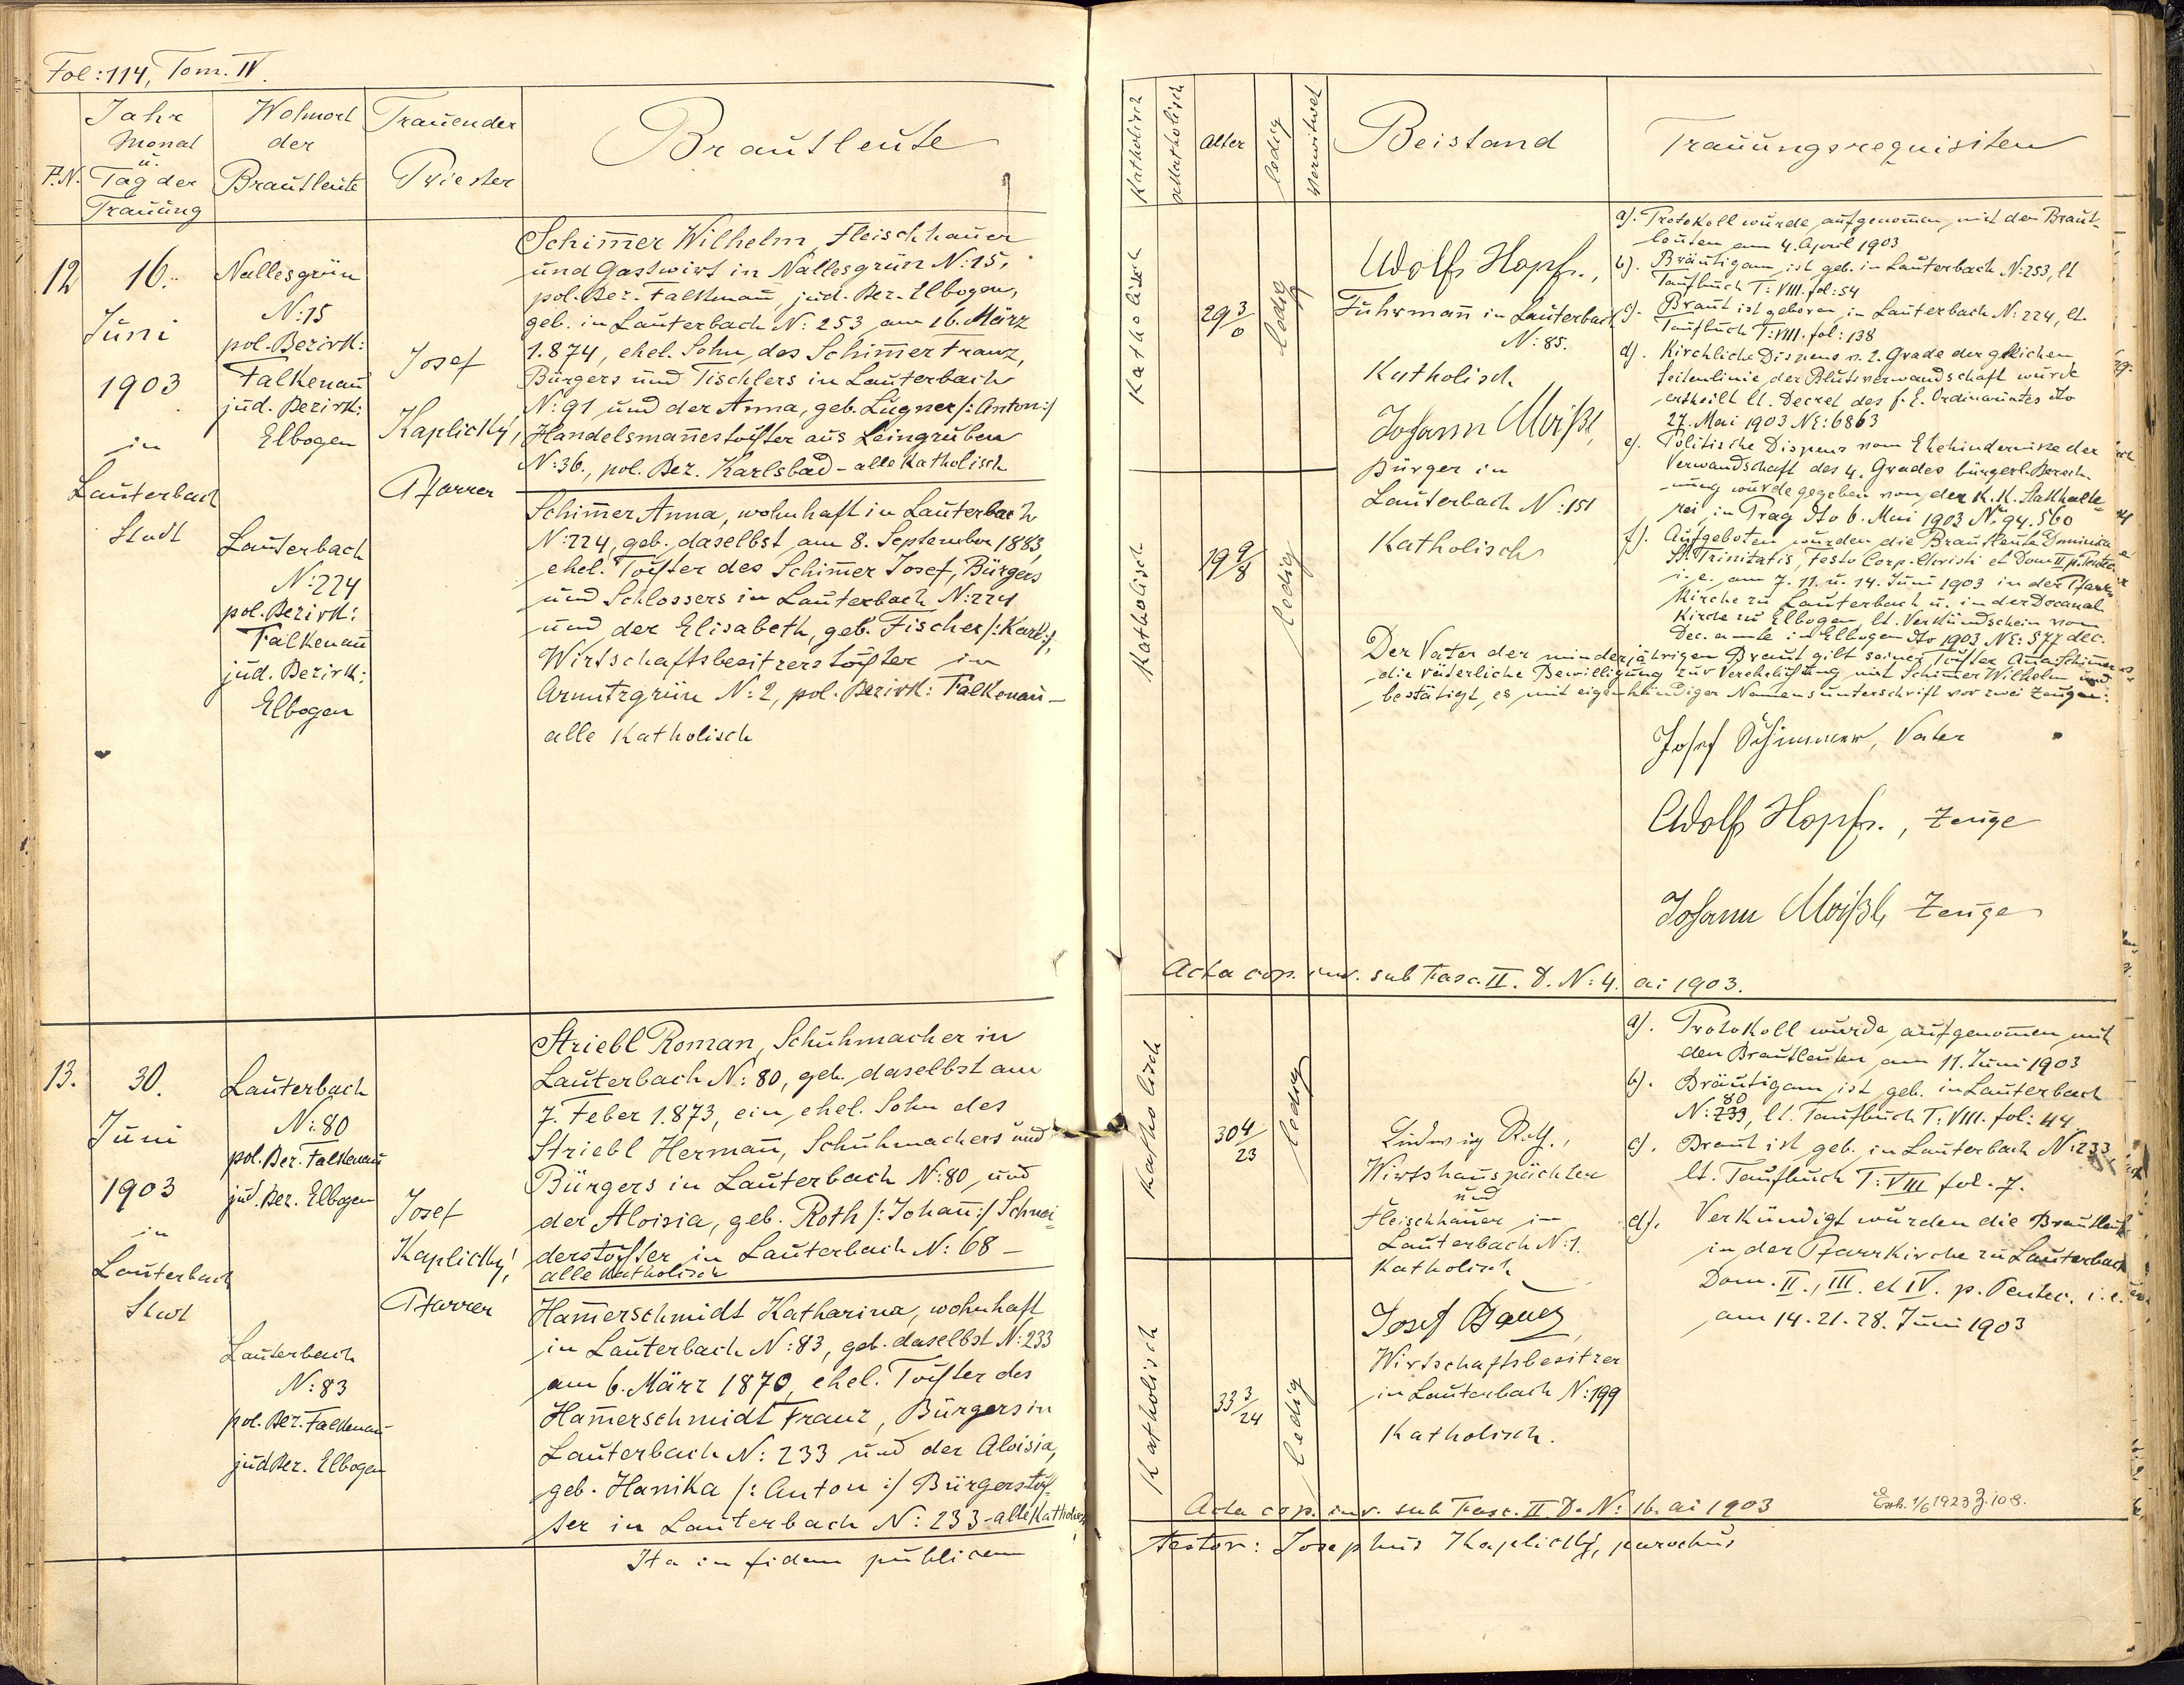 Fol: 114, Tom. IV.
P.N.
Jahr
Monat
u.
Tag der
Trauung
Wohnort
der
Brautleute
Trauender
Priester
Brautleute
12
16.
Juni
1903
in
Lauterbach
Stadt
Nallesgrün
N: 15
pol. Bezirk:
Falkenau
jud. Bezirk:
Elbogen
Lauterbach
N: 224
pol. Bezirk:
Falkenau
jud. Bezirk:
Elbogen
Josef
Kaplický,
Pfarrer
Schim̅er Wilhelm, Fleischhauer
und Gastwirt in Nallesgrün N: 15,
pol. Bez. Falkenau, jud. Bez. Elbogen,
geb. in Lauterbach N: 253 am 16. März
1.874, ehel. Sohn des Schim̅er Franz,
Bürgers und Tischlers in Lauterbach
N: 91 und der Anna, geb. Lugner /: Anton :/
Handelsman̅estochter aus Leingruben
N: 36., pol. Bez. Karlsbad - alle Katholisch
Schim̅er Anna, wohnhaft in Lauterbach
N: 224, geb. daselbst am 8. September 1883,
ehel. Tochter des Schim̅er Josef, Bürgers
und Schlossers in Lauterbach N: 224
und der Elisabeth, geb. Fischer /: Karl :/,
Wirtschaftsbesitzerstochter in
Armutzgrün N: 2, pol. Bezirk: Falkenau -
alle Katholisch
13.
30.
Juni
1903
in
Lauterbach
Stadt
Lauterbach
N: 80
pol. Bez. Falkenau
jud. Bez. Elbogen
Lauterbach
N: 83
pol. Bez. Falkenau
jud Bez. Elbogen
Josef
Kaplický,
Pfarrer
Striebl Roman, Schuhmacher in
Lauterbach N: 80, geb. daselbst am
7. Feber 1.873, ein ehel. Sohn des
Striebl Herman̅, Schuhmachers und
Bürgers in Lauterbach N: 80 und
der Aloisia, geb. Roth /: Johan̅ :/ Schnei-
derstochter in Lauterbach N: 68 -
alle Katholisch
Ham̅erschmidt Katharina, wohnhaft
in Lauterbach N: 83, geb. daselbst N: 233
am 6. März 1870, ehel. Tochter des
Ham̅erschmidt Franz, Bürgers in
Lauterbach N: 233 und der Aloisia,
geb. Hanika /: Anton :/ Bürgerstoch-
ter in Lauterbach N: 233 - alle Katholisch
Ita in fidem publicam
Katholisch
Akatholisch
Alter
ledig
Verwitwet
Beistand
Trauungsrequisiten
Katholisch
29 3/0
ledig
Katholisch
19 9/8
ledig
Adolf Hopf.,
Fuhrman̅ in Lauterbach
N: 85.
Katholisch
Johann Moißl,
Bürger in
Lauterbach N: 151
Katholisch
a). Protokoll wurde aufgenom̅en mit den Braut-
leuten am 4. April 1903
b). Bräutigam ist geb. in Lauterbach N: 253, lt
Taufbuch T: VIII. fol: 54
c). Braut ist geboren in Lauterbach N: 224, lt.
Taufbuch T: VIII. fol: 138
d). Kirchliche Dispens v. 2. Grade der gleichen
Seitenlinie der Blutsverwandschaft wurde
ertheilt lt. Decret des f. E. Ordinariates dto
27. Mai 1903 NE: 6863
e). Politische Dispens vom Ehehindernisse der
Verwandschaft des 4. Grades bürgerl. Berech-
nung wurde gegeben von der K. K. Statthalte-
rei in Prag dto 6. Mai 1903 N: 94.560
f). Aufgeboten wurden die Brautleute Dominica
St. Trinitatis, Festo Corp. Christi et Dom II p. Pentec.
i. e. am 7. 11. u. 14. Juni 1903 in der Pfarr-
kirche zu Lauterbach u. in der Decanal
Kirche zu Elbogen, lt. Verkündschein vom
Dec. amte in Elbogen dto 1903, NE: 577 dec.
Der Vater der minderjährigen Braut gibt seiner Tochter Anna Schim̅er
die väterliche Bewilligung zur Verehelichung mit Schim̅er Wilhelm und
bestätigt es mit eigenhändiger Namensunterschrift vor zwei Zeugen:
Josef Schimmer, Vater
Adolf Hopf., Zeuge
Johann Moißl, Zeuge
Acta cop. inv. sub Fasc. II. D. N: 4. ai 1903.
Katholisch
30 4/23
ledig
Katholisch
33 3/24
ledig
Ludwig Roth.,
Wirtshauspächter
und
Fleischhauer in
Lauterbach N: 1.
Katholisch
Josef Bauer,
Wirtschaftsbesitzer
in Lauterbach N: 199
Katholisch.
a). Protokoll wurde aufgenom̅en mit
den Brautleuten am 11. Juni 1903
b). Bräutigam ist geb. in Lauterbach
80
N: 233, lt. Taufbuch T: VIII. fol: 44
c). Braut ist geb. in Lauterbach N: 233
lt. Taufbuch T: VIII fol. 7.
d). Verkündigt wurden die Brautleute
in der Pfarrkirche zu Lauterbach
Dom. II., III. et IV. p. Pentec. i. e.
am 14. 21. 28. Juni 1903
Acta cop. inv. sub Fasc. II D. N: 16. ai 1903
1/6 1923 Z. 108.
testor: Josephus Kaplický, parochus